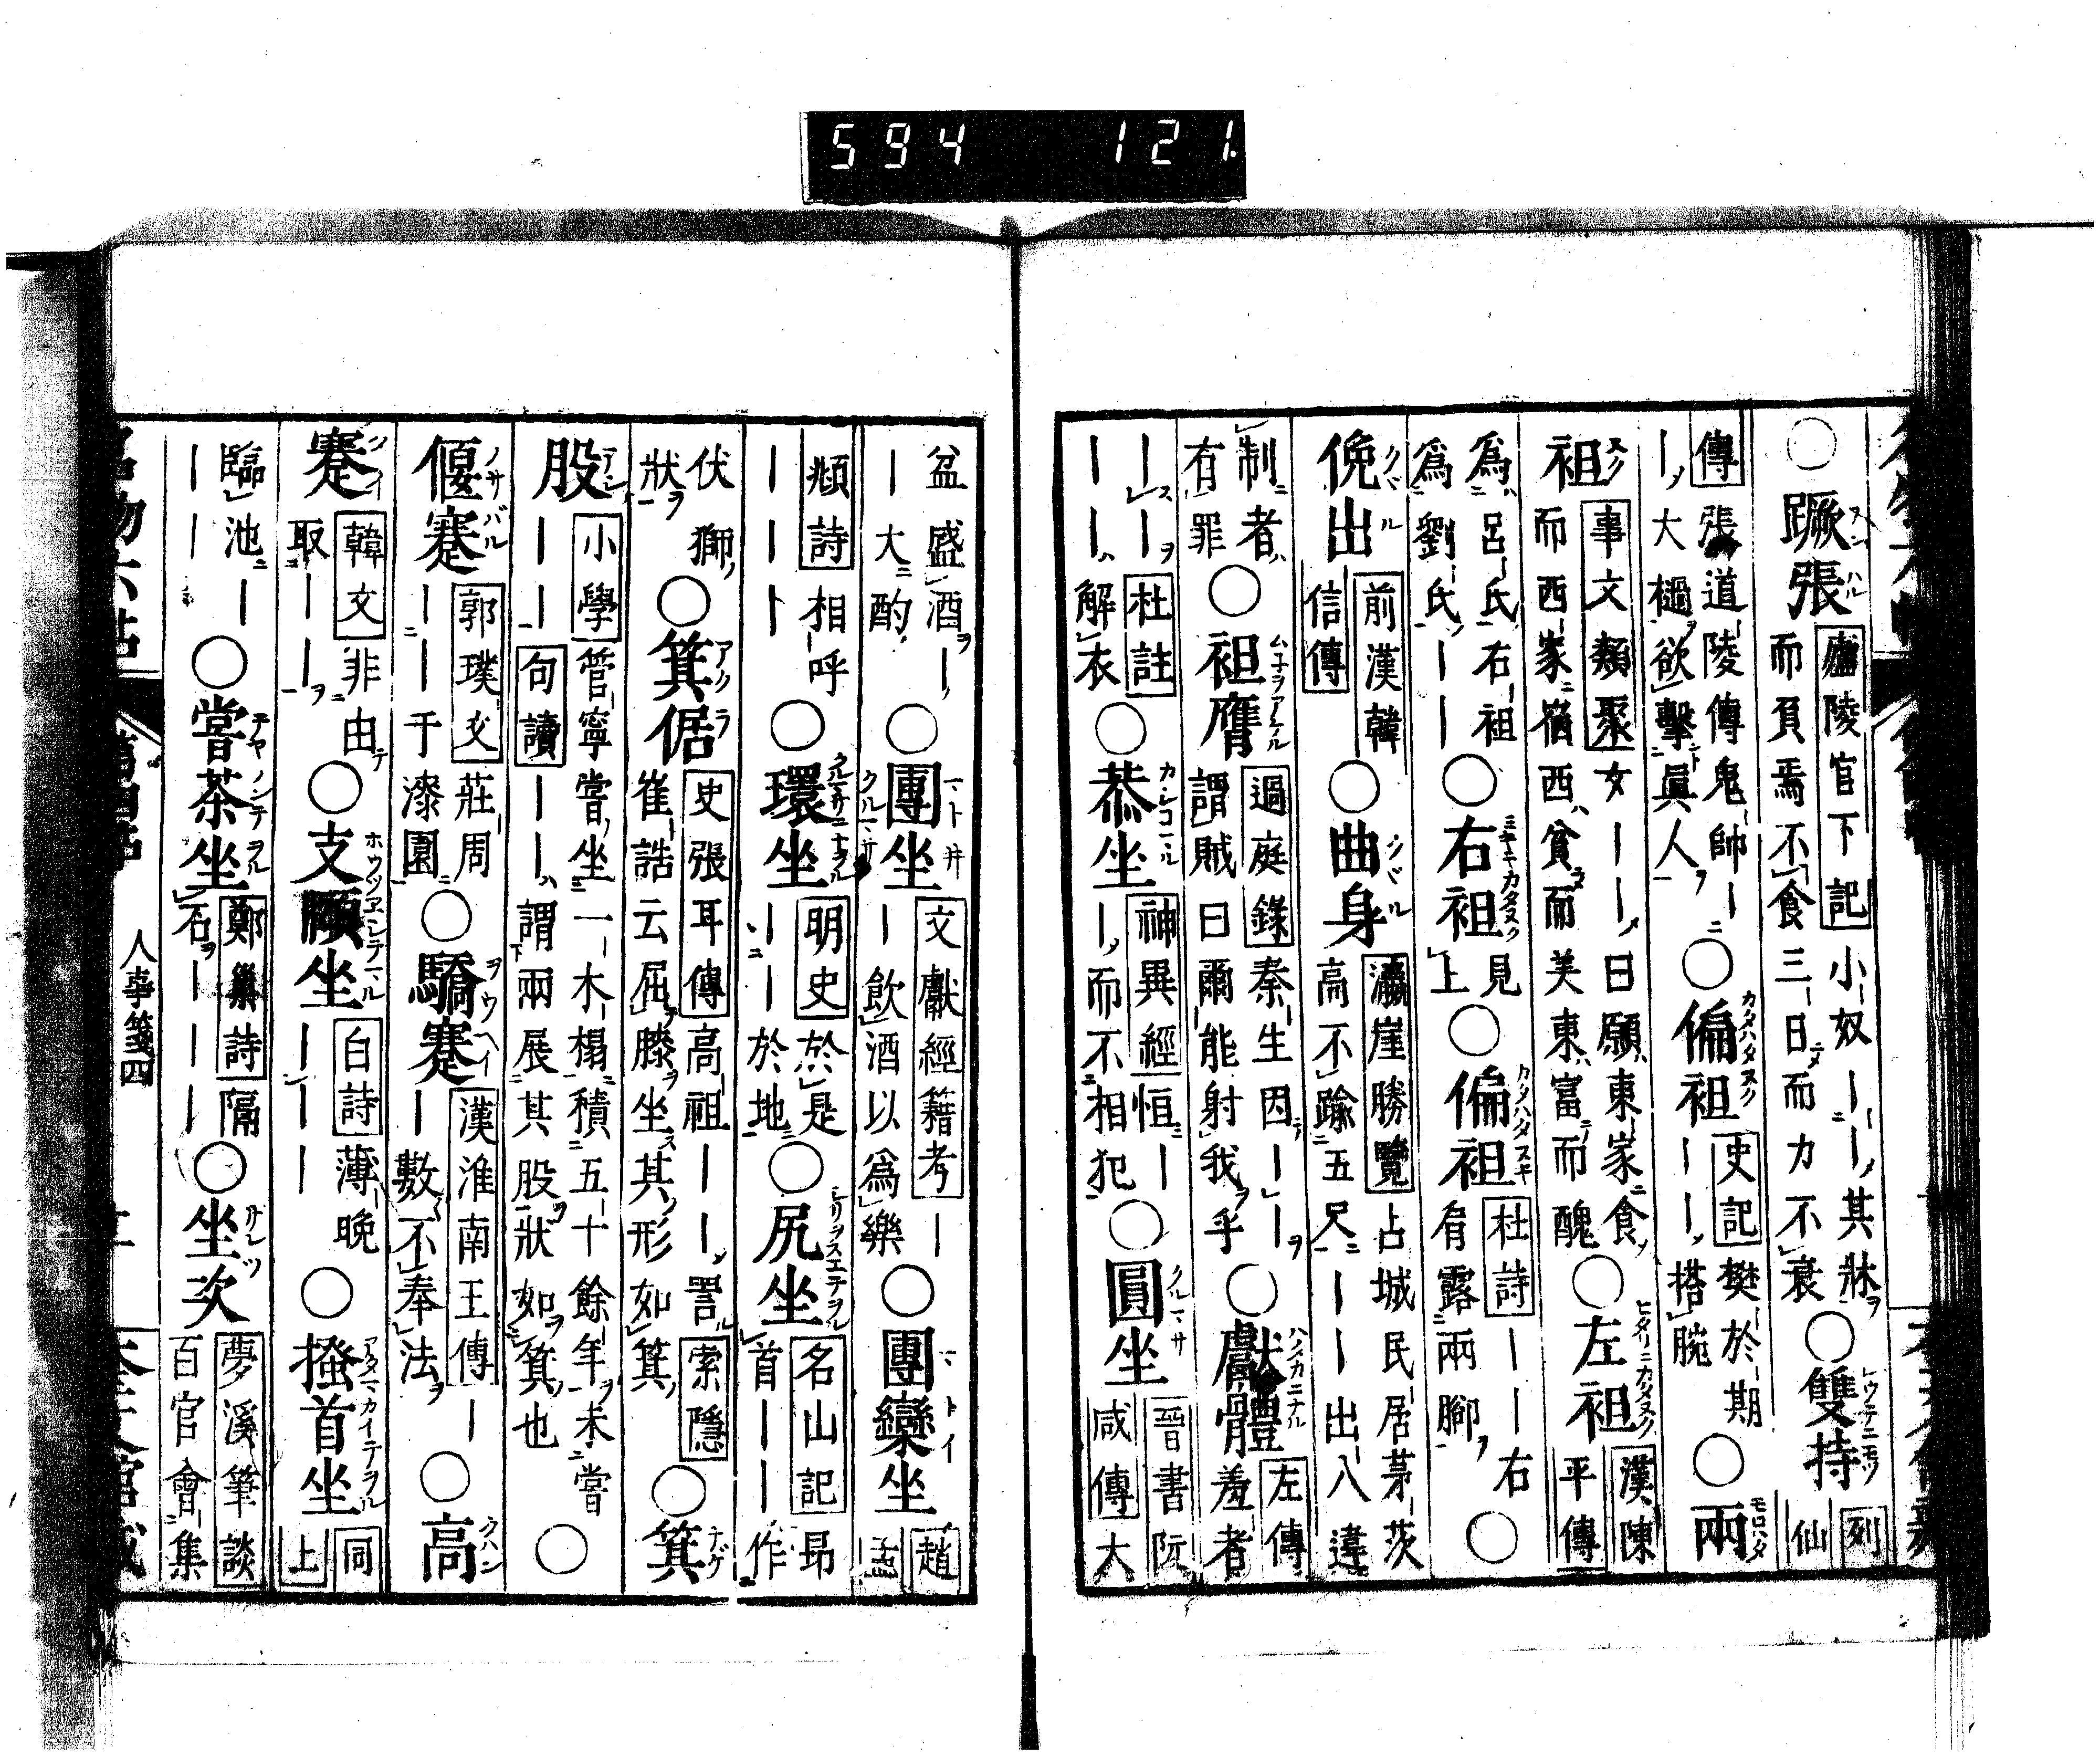 594 121
○蹶張 廬陵官下記 小奴――其牀
而負焉不食三日而力不衰 ○雙持 列仙
傳 張道陵傳鬼帥―
―大槌欲擊眞人 ○偏袒 史記 樊於期
――搭腕 ○兩
袒 事文類聚 女――曰願東家食
而西家宿西貧而美東富而醜 ○左袒 漢陳平傳
爲呂氏右袒
爲劉氏―― ○右袒 見上 ○偏袒 杜詩 ――右
肩露兩腳 ○
俛出 前漢韓信傳 ○曲身 瀛崖勝覽 占城民居茅茨
高不踰五尺――出入違
制者
有罪 ○袒膺 過庭錄 秦生因――
謂賊曰爾能射我乎 ○獻體 左傳 羞者
――
―― 杜註 解衣 ○恭坐 神異經 恒―
―而不相犯 ○圓坐 晉書阮咸傳 大
盆盛酒―
―大酌 ○團坐 文獻經籍考 ―
―飲酒以爲樂 ○團欒坐 趙孟
頫詩 相呼
――― ○環坐 明史 於是
――於地 ○尻坐 名山記 昂
首――作
伏獅
狀 ○箕倨 史張耳傳 高祖――詈 索隱
崔誥云屈膝坐其形如箕 ○箕
股 小學 管寧嘗坐一木榻積五十餘年未嘗
―― 句讀 ――謂兩展其股狀如箕也 ○
偃蹇 郭璞文 莊周
――于漆園 ○驕蹇 漢淮南王傳 ―
―數不奉法 ○高
蹇 韓文 非由
取―― ○支頤坐 白詩 薄晚
――― ○搔首坐 同上
臨池―
―― ○嘗茶坐 鄭巢詩 隔
石――― ○坐次 夢溪筆談
百官會集
人事箋四